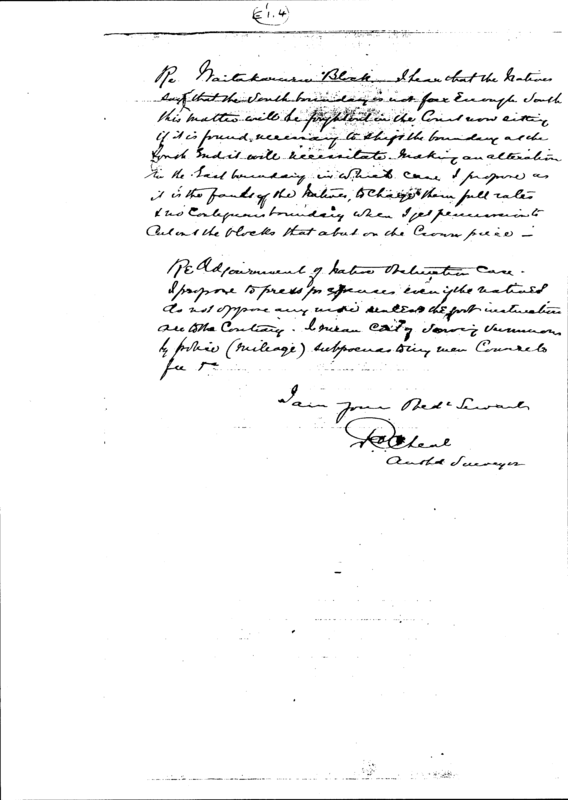 E 1.4
Re Waitakaruru Block I hear that the Natives
say that the South boundary is not far enough South
this matter will be fought out in the Court now sitting
if it is found necessary to shift the boundary at the
South End it will necessitate making an alteration
in the East boundary in which case I propose as
it is the fault of the Natives, to charge them full rates
& no contiguous boundary when I get permission to
cut out the blocks that abut on the Crown piece —
Re Adjournment of Native Obstruction Case.
I propose to press for expenses even if the natives
do not oppose any more unless the govt instructions
are to the Contrary. I mean cost of serving summons
by police (mileage) subpoenas to my men Counsels
fee &c
I am your Obedt Servant
Cheal
Authd Surveyor